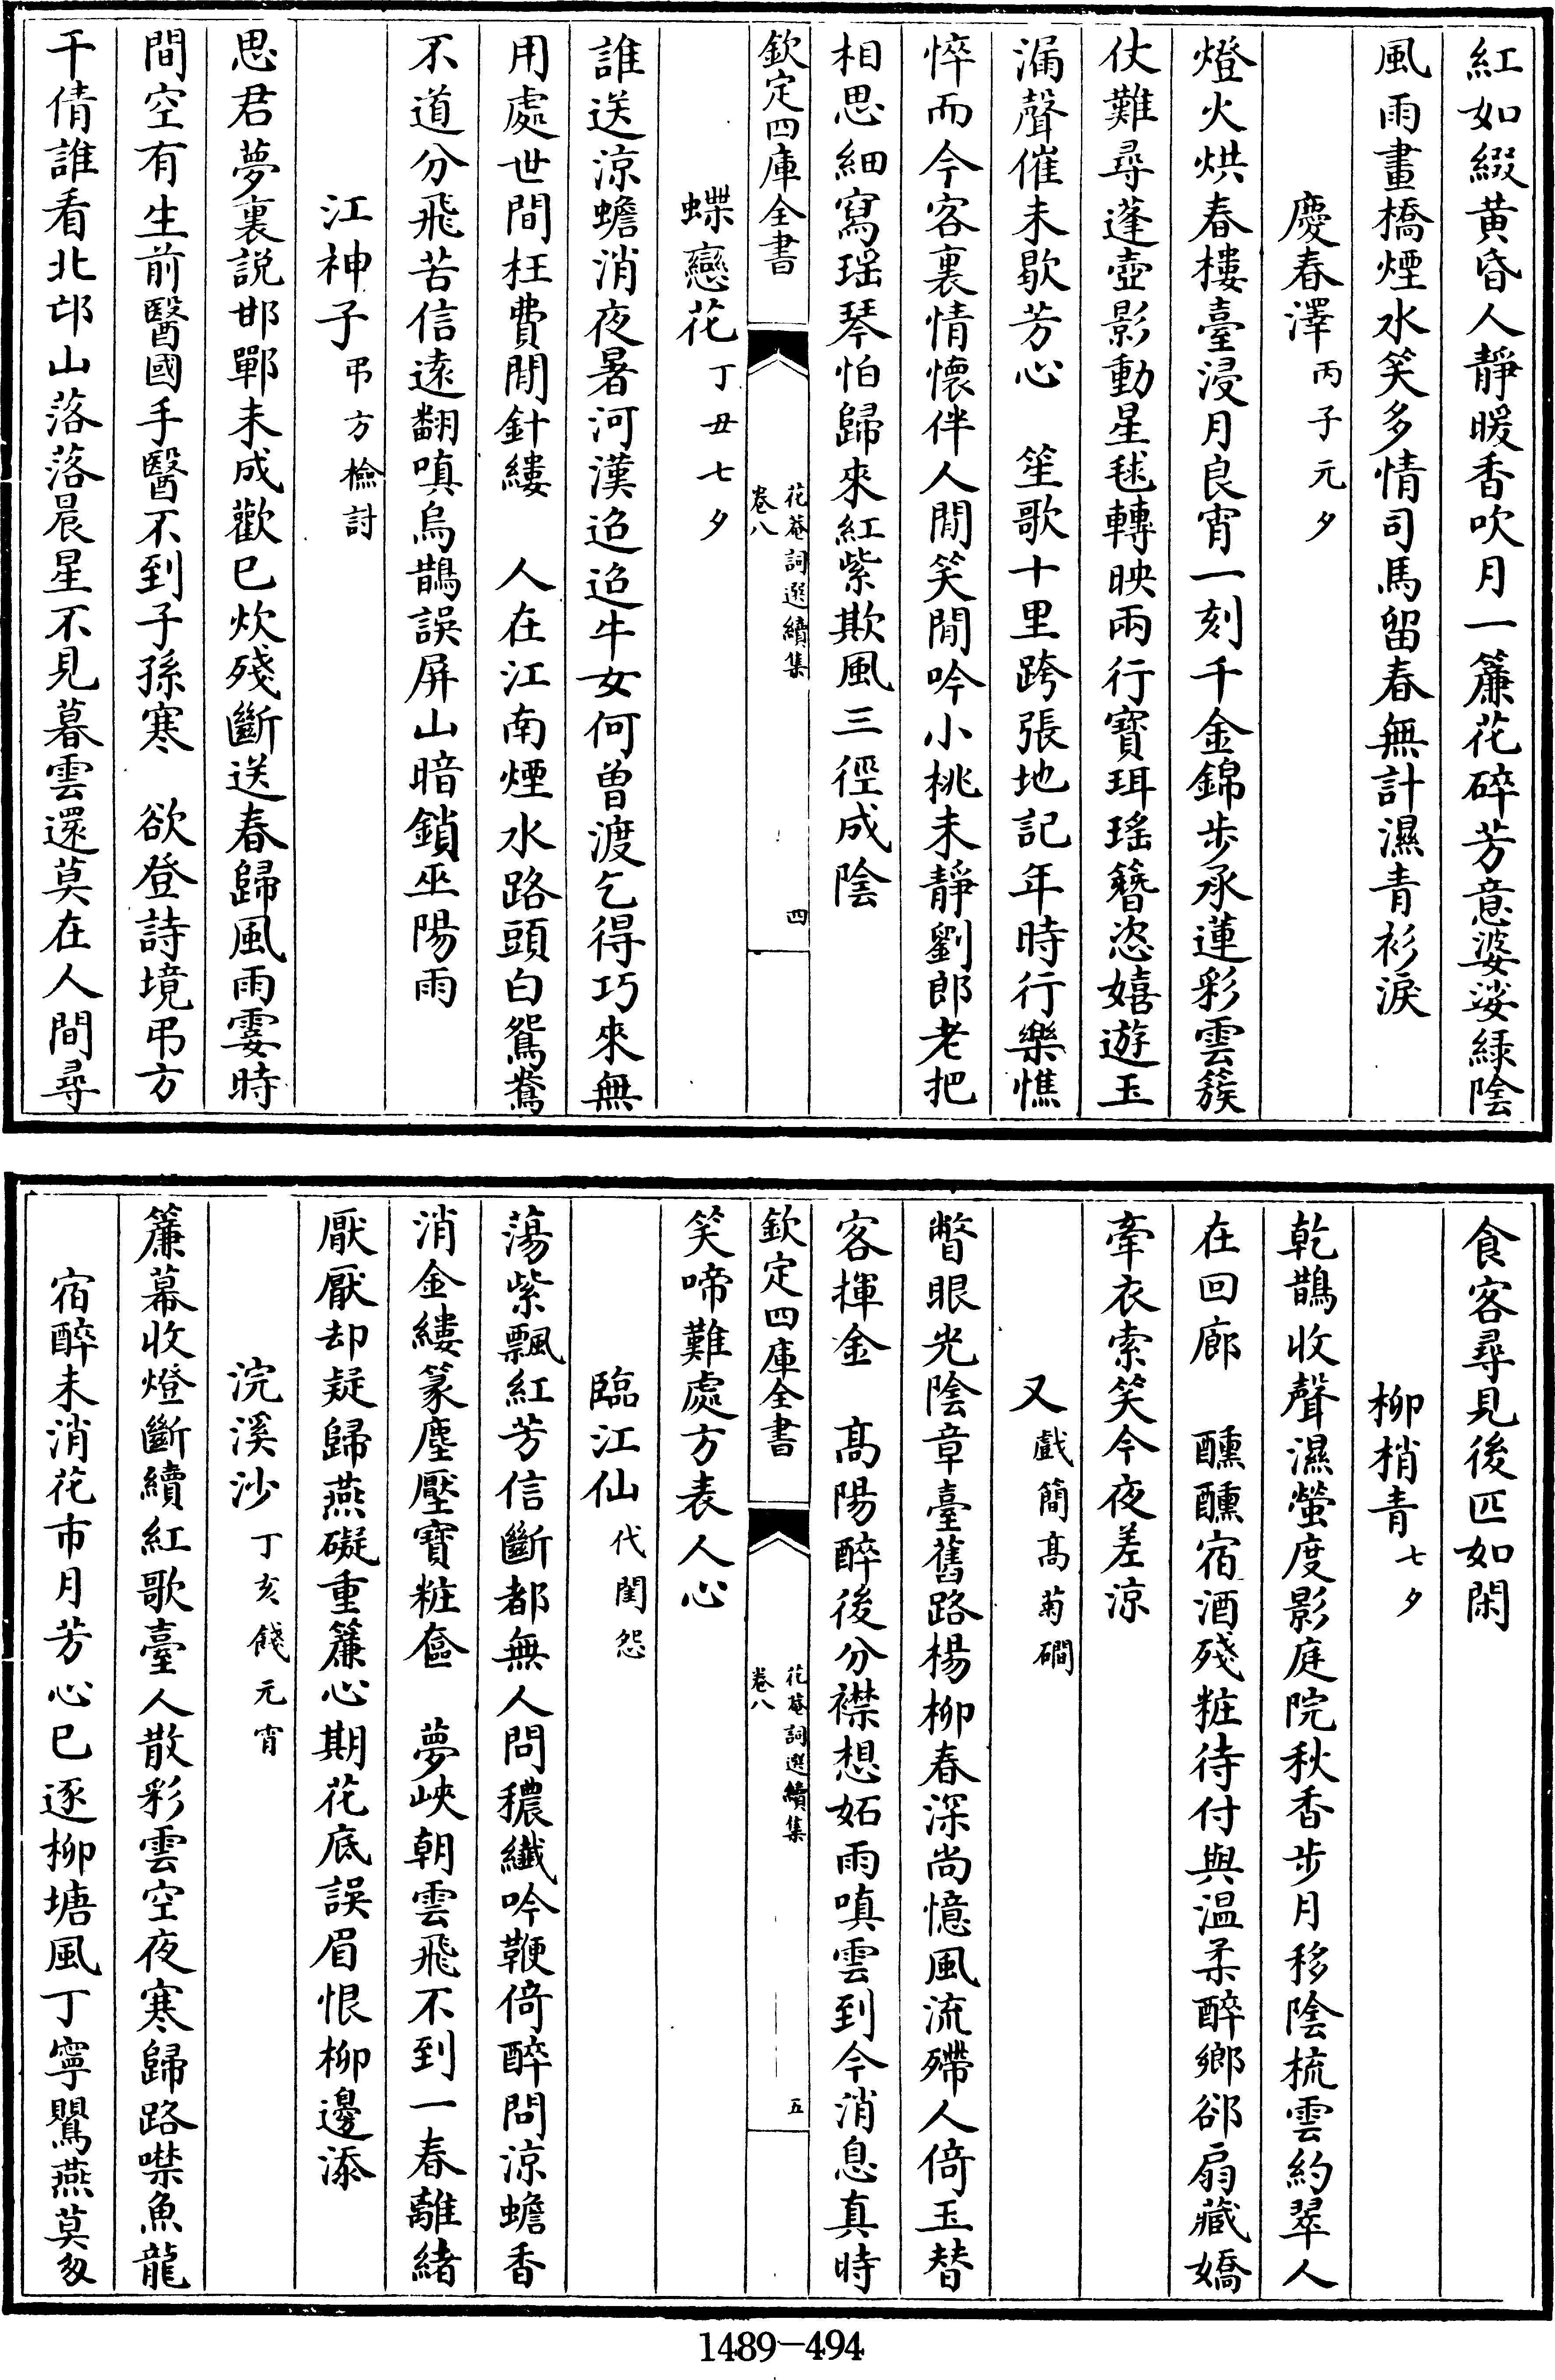 紅如綴黃昏人靜暖香吹月一簾花碎芳意婆娑緑陰
風雨畫橋煙水笑多情司馬留春無計濕青衫淚
慶春澤丙子元夕
燈火烘春樓臺浸月良宵一刻千金錦步承蓮彩雲簇
仗難尋蓬壺影動星毬轉映兩行寶珥瑤簪恣嬉遊玉
漏聲催未歇芳心　笙歌十里跨張地記年時行樂憔
悴而今客裏情懷伴人閒笑閒吟小桃未靜劉郎老把
相思細寫瑶琴怕歸來紅紫欺風三徑成陰
欽定四庫全書　花菴詞選續集卷八　四
蝶戀花丁丑七夕
誰送涼蟾消夜暑河漢迢迢牛女何曾渡乞得巧來無
用處世間枉費閒針縷　人在江南煙水路頭白鴛鴦
不道分飛苦信遠翻嗔烏鵲誤屏山暗鎖巫陽雨
江神子弔方檢討
思君夢裏説邯鄲未成歡已炊殘斷送春歸風雨霎時
間空有生前醫國手醫不到子孫寒　欲登詩境弔方
干倩誰看北邙山落落晨星不見暮雲還莫在人間尋
食客尋見後匹如閑
柳梢青七夕
乾鵲收聲濕螢度影庭院秋香步月移陰梳雲約翠人
在回廊　醺醺宿酒殘粧待付與温柔醉鄉郤扇藏嬌
牽衣索笑今夜差涼
又戲簡髙菊磵
瞥眼光陰章臺舊路楊柳春深尚憶風流殢人倚玉替
客揮金　髙陽醉後分襟想妬雨嗔雲到今消息真時
欽定四庫全書　花菴詞選續集卷八　五
笑啼難處方表人心
臨江仙代閨怨
蕩紫飄紅芳信斷都無人問穠纖吟鞭倚醉問涼蟾香
消金縷篆塵壓寶粧奩　夢峽朝雲飛不到一春離緒
厭厭却疑歸燕礙重簾心期花底誤眉恨柳邊添
浣溪沙丁亥餞元宵
簾幕收燈斷續紅歌臺人散彩雲空夜寒歸路噤魚龍
宿醉未消花市月芳心已逐柳塘風丁寧鸎燕莫匆
1489-494